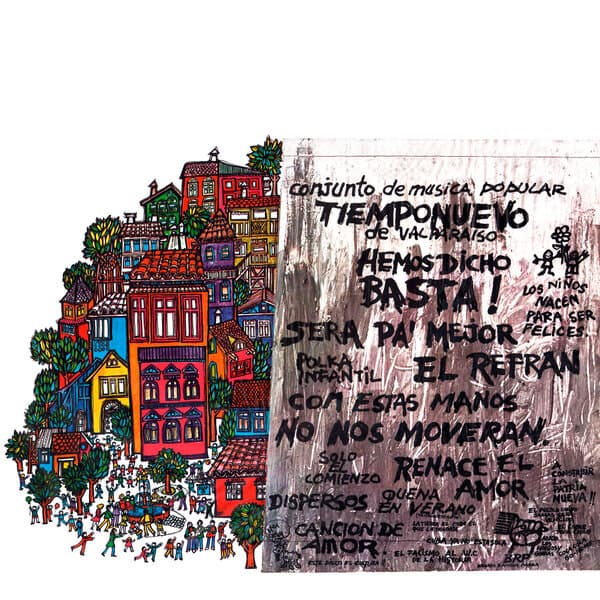 conjunto de musica POPULAR
TIEMPONUEVO
de VALPARAISO
HEMOS DICHO
BASTA!
LOS NIÑOS
NACEN
PARA SER
FELICES.
SERA PA' MEJOR
POLKA
INFANTIL
EL REFRAN
CON ESTAS MANOS
NO NOS MOVERAN.
SOLO
EL
COMIENZO
RENACE EL
AMOR
A
CONSTRUIR
LA
PATRIA
NUEVA!!
DISPERSOS
QUENA
EN VERANO
CANCION DE
AMOR
CUBA YA NO ESTA SOLA
EL FASCISMO AL W.C
DE LA HISTORIA
BRP